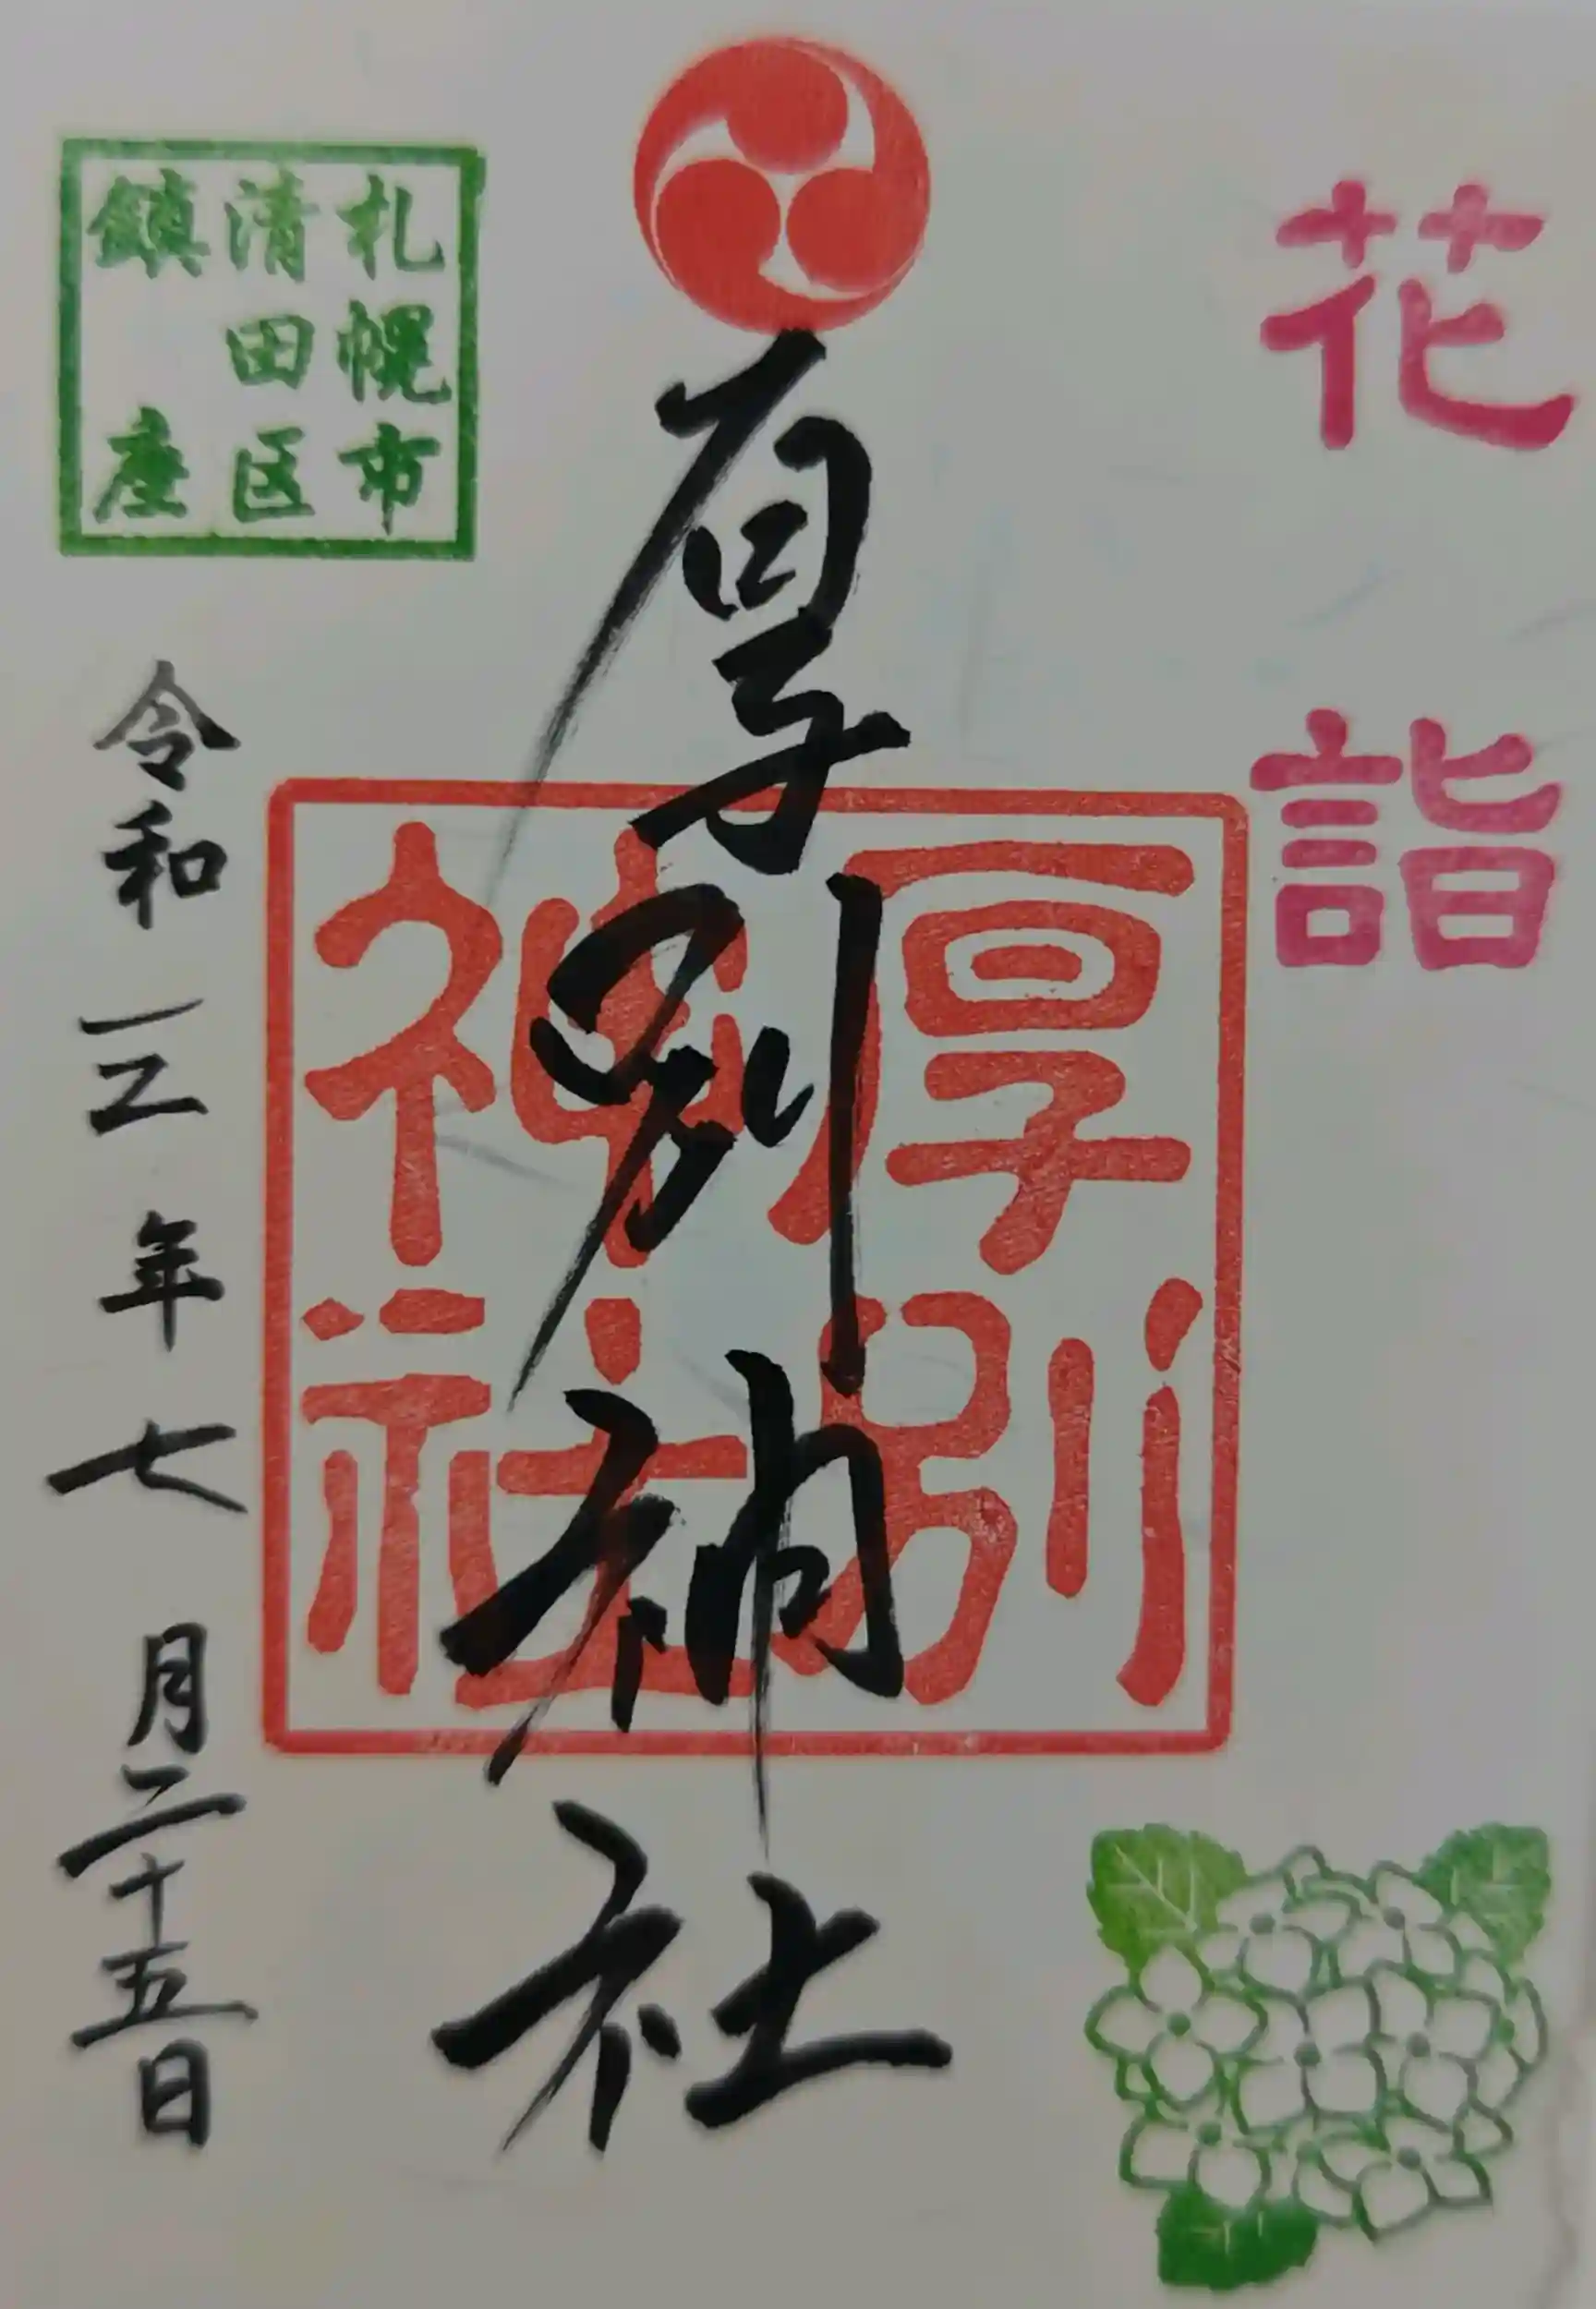 花詣
厚別神社
厚別
神社
札幌市
清田区
鎮座
令和三年七月二十五日